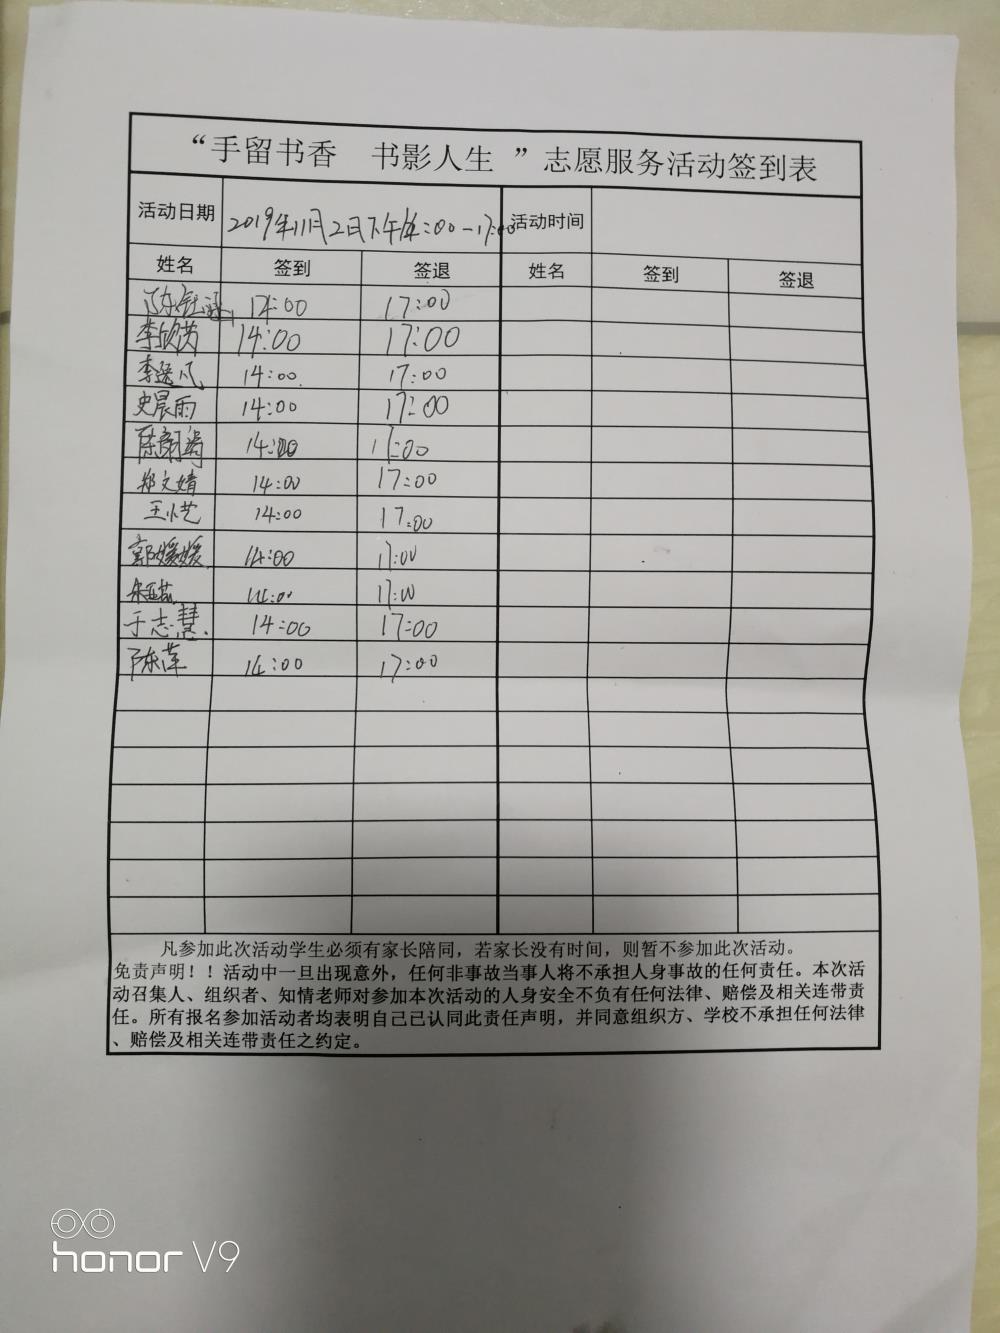 “手留书香 书影人生 ”志愿服务活动签到表
活动日期 2019年11月2日下午14:00-17:00 活动时间
姓名 签到 签退 姓名 签到 签退
陈钰涵 14:00 17:00
李欣芮 14:00 17:00
李逸凡 14:00 17:00
史晨雨 14:00 17:00
陈 14:00 17:00
郑文婧 14:00 17:00
王小艺 14:00 17:00
郭媛媛 14:00 17:00
14:00 17:00
于志慧 14:00 17:00
陈萍 14:00 17:00
凡参加此次活动学生必须有家长陪同，若家长没有时间，则暂不参加此次活动。
免责声明！！活动中一旦出现意外，任何非事故当事人将不承担人身事故的任何责任。本次活
动召集人、组织者、知情老师对参加本次活动的人身安全不负有任何法律、赔偿及相关连带责
任。所有报名参加活动者均表明自己已认同此责任声明，并同意组织方、学校不承担任何法律
、赔偿及相关连带责任之约定。
honor V9